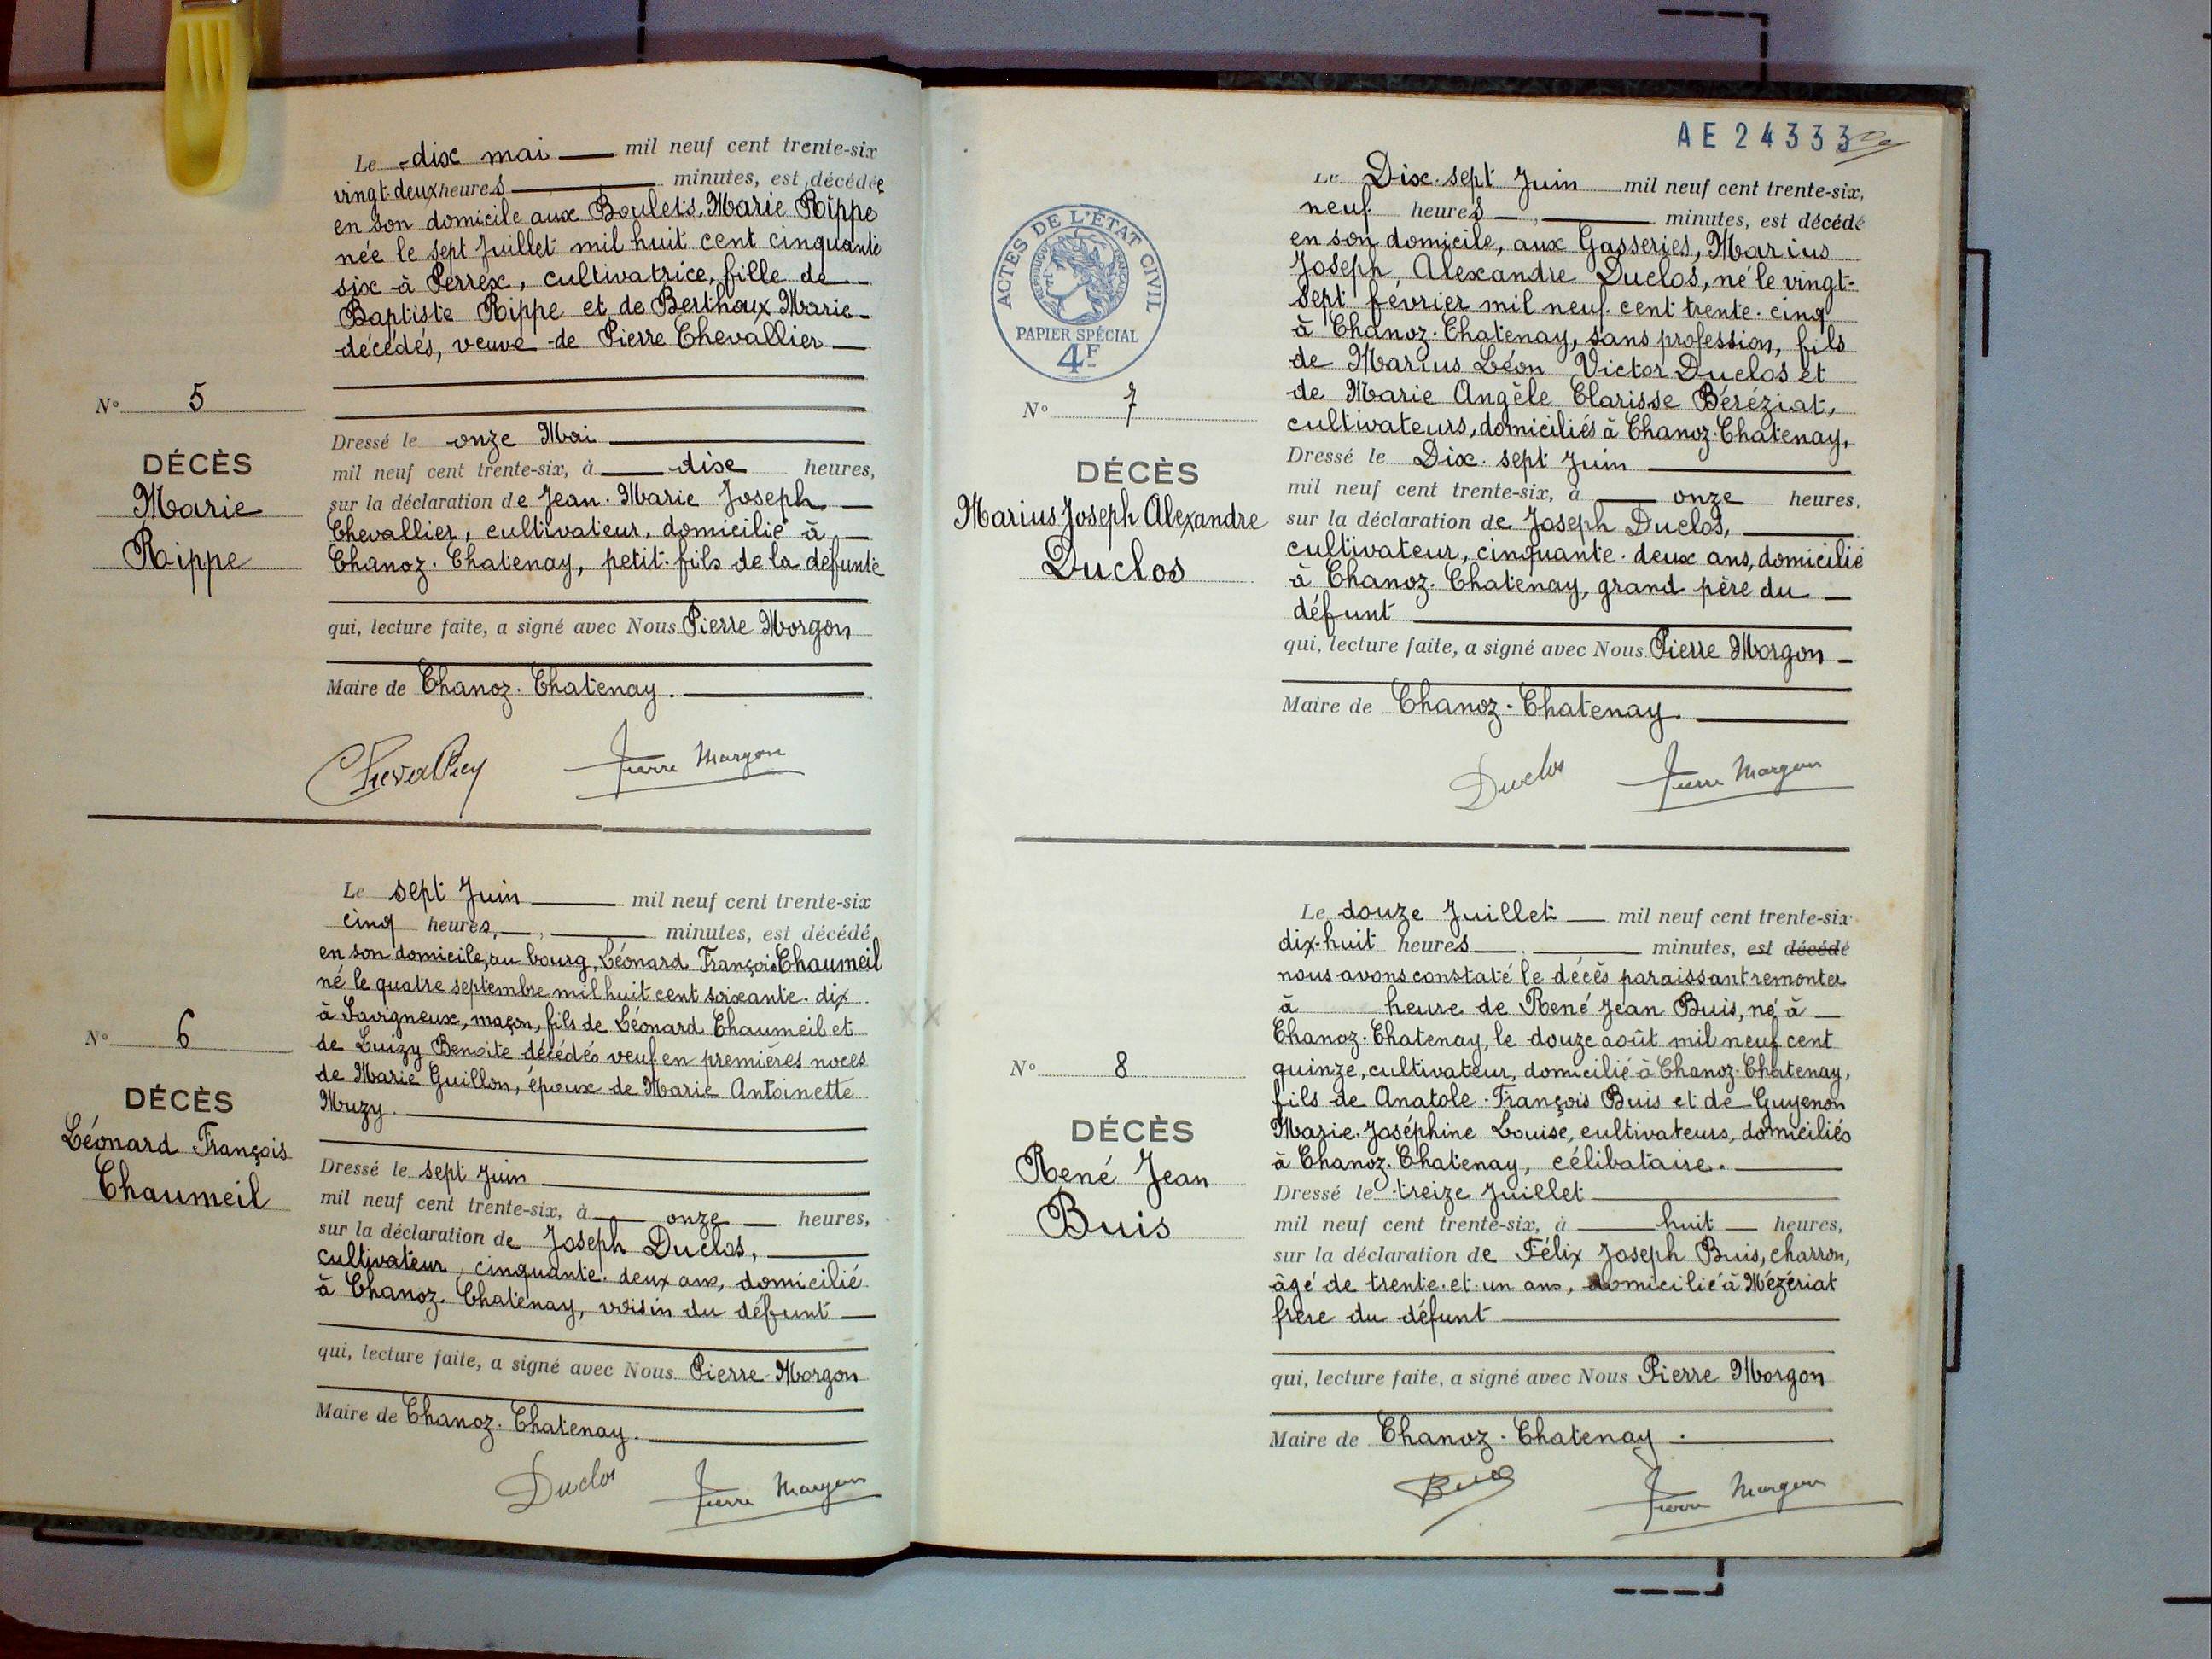 Le dix mai mil neuf cent trente-six
vingt-deux heures minutes, est décédée
en son domicile aux Boulets, Marie Rippe
née le sept Juillet mil huit cent cinquante
six à Perrex, cultivatrice, fille de
Baptiste Rippe et de Berthoux Marie
décédés, veuve de Pierre Chevallier
N° 5
DÉCÈS
Marie
Rippe
Dressé le onze Mai
mil neuf cent trente-six, à dix heures,
sur la déclaration de Jean-Marie Joseph
Chevallier, cultivateur, domicilié à
Chanoz-Chatenay, petit-fils de la défunte
qui, lecture faite, a signé avec Nous Pierre Morgon
Maire de Chanoz-Chatenay.
Pierre Morgon
Le sept Juin mil neuf cent trente-six
cinq heures, minutes, est décédé
en son domicile, au bourg, Léonard François Chaumeil
né le quatre septembre mil huit cent soixante-dix
à Savigneux, maçon, fils de Léonard Chaumeil et
de Luizy Benoite décédés veuf en premières noces
de Marie Guillon, époux de Marie Antoinette
Muzy.
N° 6
DÉCÈS
Léonard François
Chaumeil
Dressé le sept Juin
mil neuf cent trente-six, à onze heures,
sur la déclaration de Joseph Duclos,
cultivateur, cinquante-deux ans, domicilié
à Chanoz-Chatenay, voisin du défunt
qui, lecture faite, a signé avec Nous Pierre Morgon
Maire de Chanoz-Chatenay.
Duclos Pierre Morgon
AE 24333
ACTES DE L'ÉTAT CIVIL
RÉPUBLIQUE FRANÇAISE
PAPIER SPÉCIAL
4F
Le Dix-sept Juin mil neuf cent trente-six,
neuf heures, minutes, est décédé
en son domicile, aux Gasseries, Marius
Joseph Alexandre Duclos, né le vingt-
sept février mil neuf cent trente-cinq
à Chanoz-Chatenay, sans profession, fils
de Marius Léon Victor Duclos et
de Marie Angèle Clarisse Béréziat,
cultivateurs, domiciliés à Chanoz-Chatenay,
N° 7
DÉCÈS
Marius Joseph Alexandre
Duclos
Dressé le Dix-sept Juin
mil neuf cent trente-six, à onze heures,
sur la déclaration de Joseph Duclos,
cultivateur, cinquante-deux ans, domicilié
à Chanoz-Chatenay, grand père du
défunt
qui, lecture faite, a signé avec Nous Pierre Morgon
Maire de Chanoz-Chatenay.
Duclos Pierre Morgon
Le douze Juillet mil neuf cent trente-six
dix-huit heures minutes, est décédé
nous avons constaté le décès paraissant remonter
à heure de René Jean Buis, né à
Chanoz-Chatenay, le douze août mil neuf cent
quinze, cultivateur, domicilié à Chanoz-Chatenay,
fils de Anatole-François Buis et de Guyenon
Marie-Joséphine Louise, cultivateurs, domiciliés
à Chanoz-Chatenay, célibataire.
N° 8
DÉCÈS
René Jean
Buis
Dressé le treize Juillet
mil neuf cent trente-six, à huit heures,
sur la déclaration de Félix Joseph Buis, charron,
âgé de trente-et-un ans, domicilié à Mézériat
frère du défunt
qui, lecture faite, a signé avec Nous Pierre Morgon
Maire de Chanoz-Chatenay.
Buis Pierre Morgon